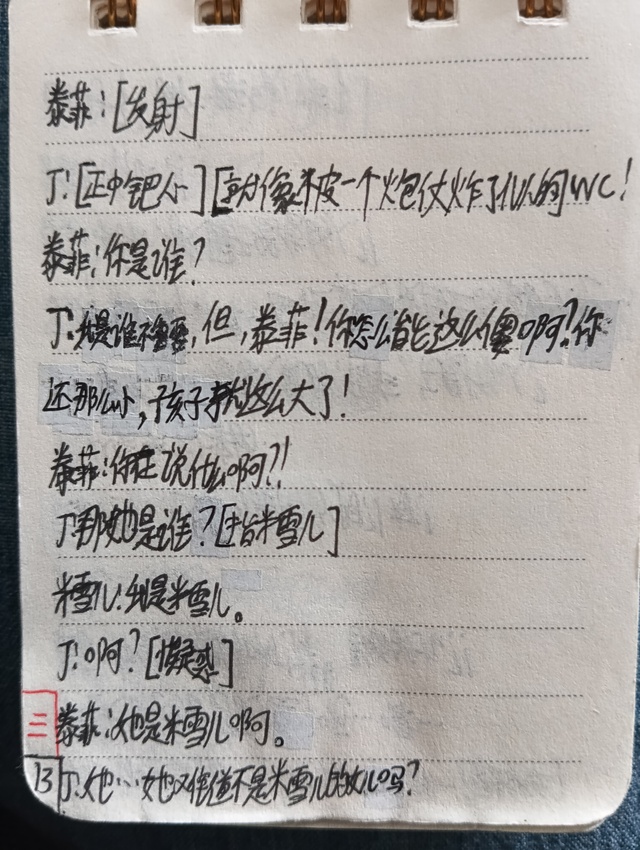 泰菲：[发射]
丁：[正中钯心][就像被一个炮仗炸了似的]WC！
泰菲：你是谁？
丁：我是谁不重要，但，泰菲！你怎么能这么傻啊？你
还那么小，孩子就这么大了！
泰菲：你在说什么啊？！
丁：那她是谁？[指米雪儿]
米雪儿：我是米雪儿。
丁：啊？[疑惑]
三 泰菲：她是米雪儿啊。
13 丁：她…她难道不是米雪儿的女儿吗？